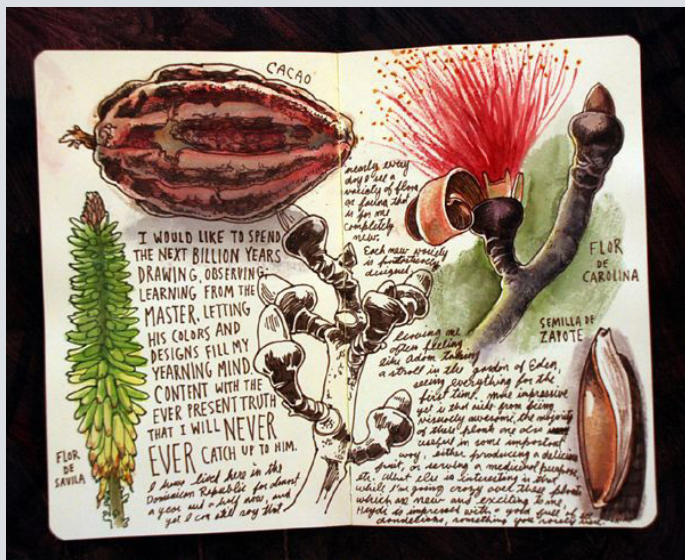 CACAO
I WOULD LIKE TO SPEND
THE NEXT BILLION YEARS
DRAWING, OBSERVING,
LEARNING FROM THE
MASTER, LETTING
HIS COLORS AND
DESIGNS FILL MY
YEARNING MIND
CONTENT WITH THE
EVER PRESENT TRUTH
THAT I WILL NEVER
EVER CATCH UP TO HIM.
FLOR
DE
SAVILA
I have lived here in the
Dominican Republic for almost
a year and a half now, and
yet I can still say that
nearly every
day I see a
variety of flora
or fauna that
is for me
completely
new.
Each new variety
is fantastically
designed,
leaving me
often feeling
like Adam taking
a stroll in the garden of Eden,
seeing everything for the
first time. More impressive
yet is that aside from being
visually awesome, the majority
of these plants are also
useful in some important
way, either producing a delicious
fruit, or serving a medicinal purpose,
etc. What else is interesting is that
while I'm going crazy over these plants
which are new and exciting to me
Heydi is impressed with a yard full of
dandelions, something you rarely
FLOR
DE
CAROLINA
SEMILLA DE
ZAPOTE